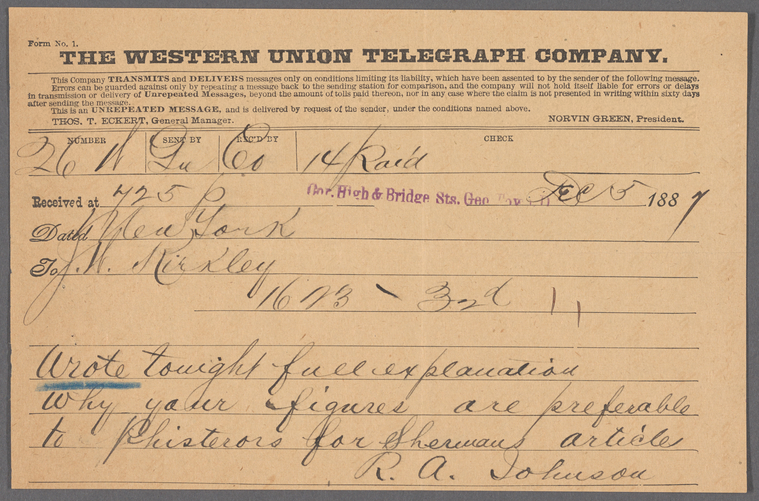 Form No. 1.
THE WESTERN UNION TELEGRAPH COMPANY.
This Company TRANSMITS and DELIVERS messages only on conditions limiting its liability, which have been assented to by the sender of the following message.
Errors can be guarded against only by repeating a message back to the sending station for comparison, and the company will not hold itself liable for errors or delays
in transmission or delivery of Unrepeated Messages, beyond the amount of tolls paid thereon, nor in any case where the claim is not presented in writing within sixty days
after sending the message.
This is an UNREPEATED MESSAGE, and is delivered by request of the sender, under the conditions named above.
THOS. T. ECKERT, General Manager. NORVIN GREEN, President.
NUMBER SENT BY REC'D BY CHECK
26 N Co 14 Paid
Received at 725 P Cor. High & Bridge Sts. Geo Dec 5 1887
Dated New York
To J. W. Kirkley
1623 - 3rd
Wrote tonight full explanation
Why your figures are preferable
to Phisterors for Shermans article
R. A. Johnson